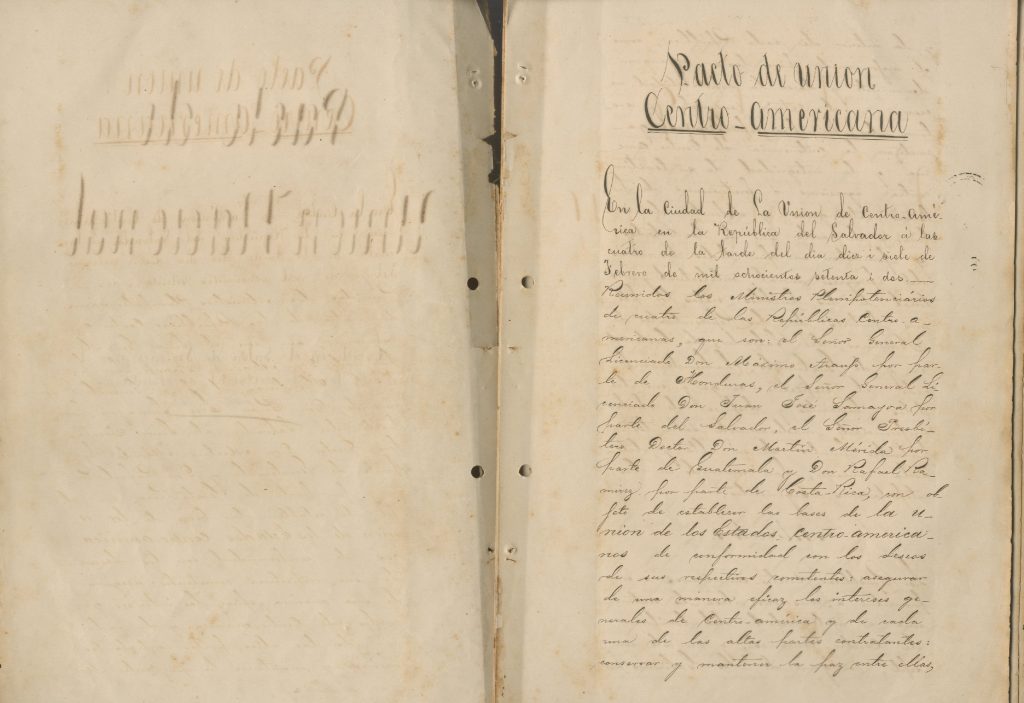 Pacto de union
Centro-americana
En la ciudad de La Union de Centro-Amé-
rica en la República del Salvador á las
cuatro de la tarde del dia diez i siete de
Febrero de mil ochocientos setenta i dos.
Reunidos los Ministros Plenipotenciários
de cuatro de las Repúblicas Centro-a-
mericanas, que son: el Señor General
Licenciado Don Máximo Araujo por par-
te de Honduras, el Señor General Li
cenciado Don Juan José Samayoa por
parte del Salvador, el Señor Presbí-
tero Doctor Don Martin Mérida por
parte de Guatemala y Don Rafael Ra-
mirez por parte de Costa-Rica, con ob
jeto de establecer las bases de la U-
nion de los Estados Centro-america-
nos de conformidad con los deseos
de sus respectivos comitentes: asegurar
de una manera eficaz los intereses ge-
nerales de Centro-américa y de cada
una de las altas partes contratantes:
conservar y mantener la paz entre ellas,